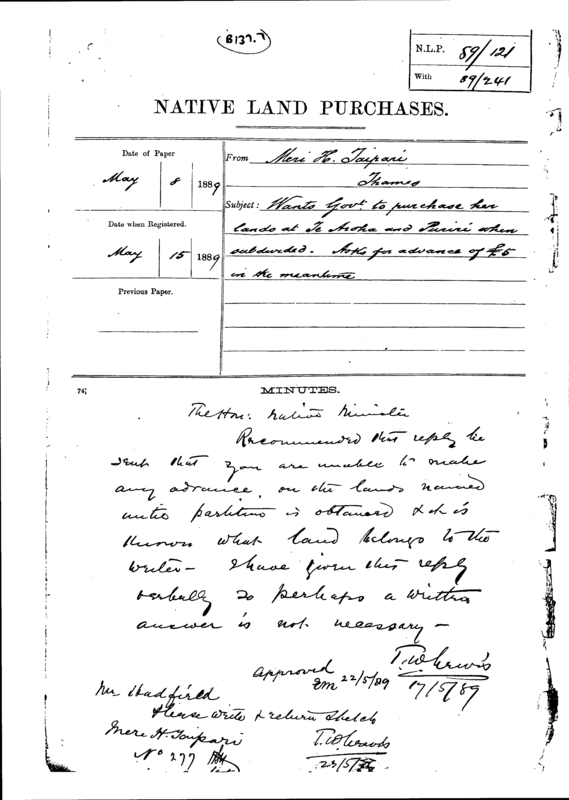 B137.7
N.L.P. 89/121
With 89/241
NATIVE LAND PURCHASES.
Date of Paper
May 8 1889
Date when Registered.
May 15 1889
Previous Paper.
From Meri H. Taipari
Thames
Subject: Wants Govt to purchase her
lands at Te Aroha and Puriri when
subdivided. Asks for advance of £5
in the meantime
74
MINUTES.
The Hon: Native Minister
Recommended that reply be
sent that you are unable to make
any advance on the lands named
until partition is obtained & it is
known what land belongs to the
writer - I have given this reply
verbally so perhaps a written
answer is not necessary -
T.W. Lewis
17/5/89
Approved
EM 22/5/89
Mr Hadfield
Please write & return sketch
T.W. Lewis
23/5/
Mere H. Taipari
No 277